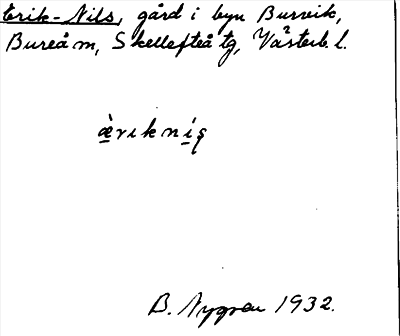 Erik-Nils, gård i byn Burvik,
Bureå m, Skellefteå tg, Västerb. l.
æ̀rikníʂ
B. Nygren 1932.